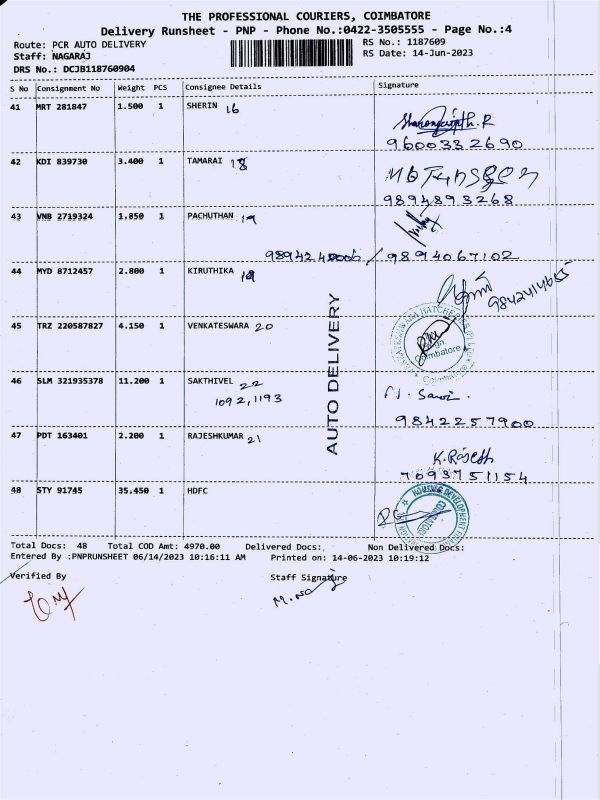 THE PROFESSIONAL COURIERS, COIMBATORE
Delivery Runsheet - PNP - Phone No.:0422-3505555 - Page No.:4
Route: PCR AUTO DELIVERY RS No.: 1187609
Staff: NAGARAJ RS Date: 14-Jun-2023
DRS No.: DCJB118760904
S No Consignment No Weight PCS Consignee Details Signature
41 MRT 281847 1.500 1 SHERIN 16
9600332690
42 KDI 839730 3.400 1 TAMARAI 18
9894893268
43 VNB 2719324 1.850 1 PACHUTHAN 19
/ 9894067102
44 MYD 8712457 2.800 1 KIRUTHIKA
9842414655
45 TRZ 220587827 4.150 1 VENKATESWARA 20
Coimbatore
46 SLM 321935378 11.200 1 SAKTHIVEL 22
1092,1193
9842257900
47 PDT 163401 2.200 1 RAJESHKUMAR 21
K.Rajesh
7093751154
48 STY 91745 35.450 1 HDFC
HOUSING DEVELOPMENT
AUTO DELIVERY
Total Docs: 48 Total COD Amt: 4970.00 Delivered Docs: Non Delivered Docs:
Entered By :PNPRUNSHEET 06/14/2023 10:16:11 AM Printed on: 14-06-2023 10:19:12
Verified By Staff Signature